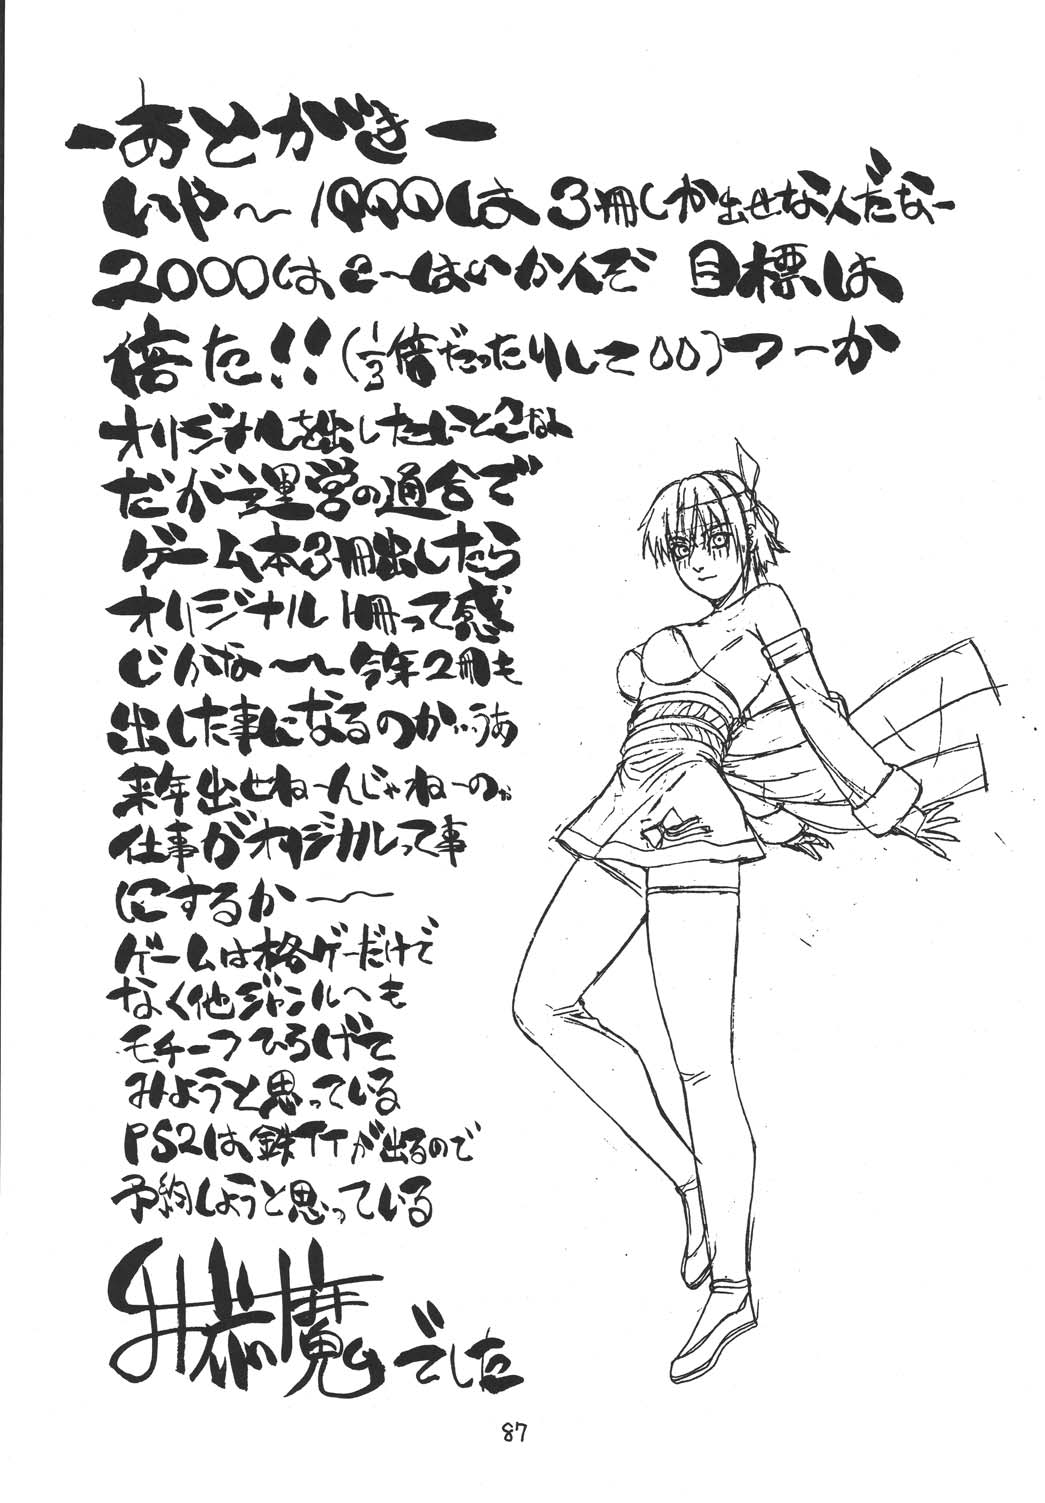 ーあとがきー
いや〜1999は3冊しか出せなんだなー
2000はこ〜はいかんぞ 目標は
倍だ!!(1/3倍だったりして○○)つーか
オリジナルを出したいとこなん
だが運営の都合で
ゲーム本3冊出したら
オリジナル1冊って感
じかな〜〜今年2冊も
出した事になるのか…うあ
来年出せねーんじゃねーのか
仕事がオリジナルって事
にするか〜
ゲームは格ゲーだけで
なく他ジャンルへも
モチーフひろげて
みようと思っている
PS2は鉄TTが出るので
予約しようと思っている
魔の でした
87